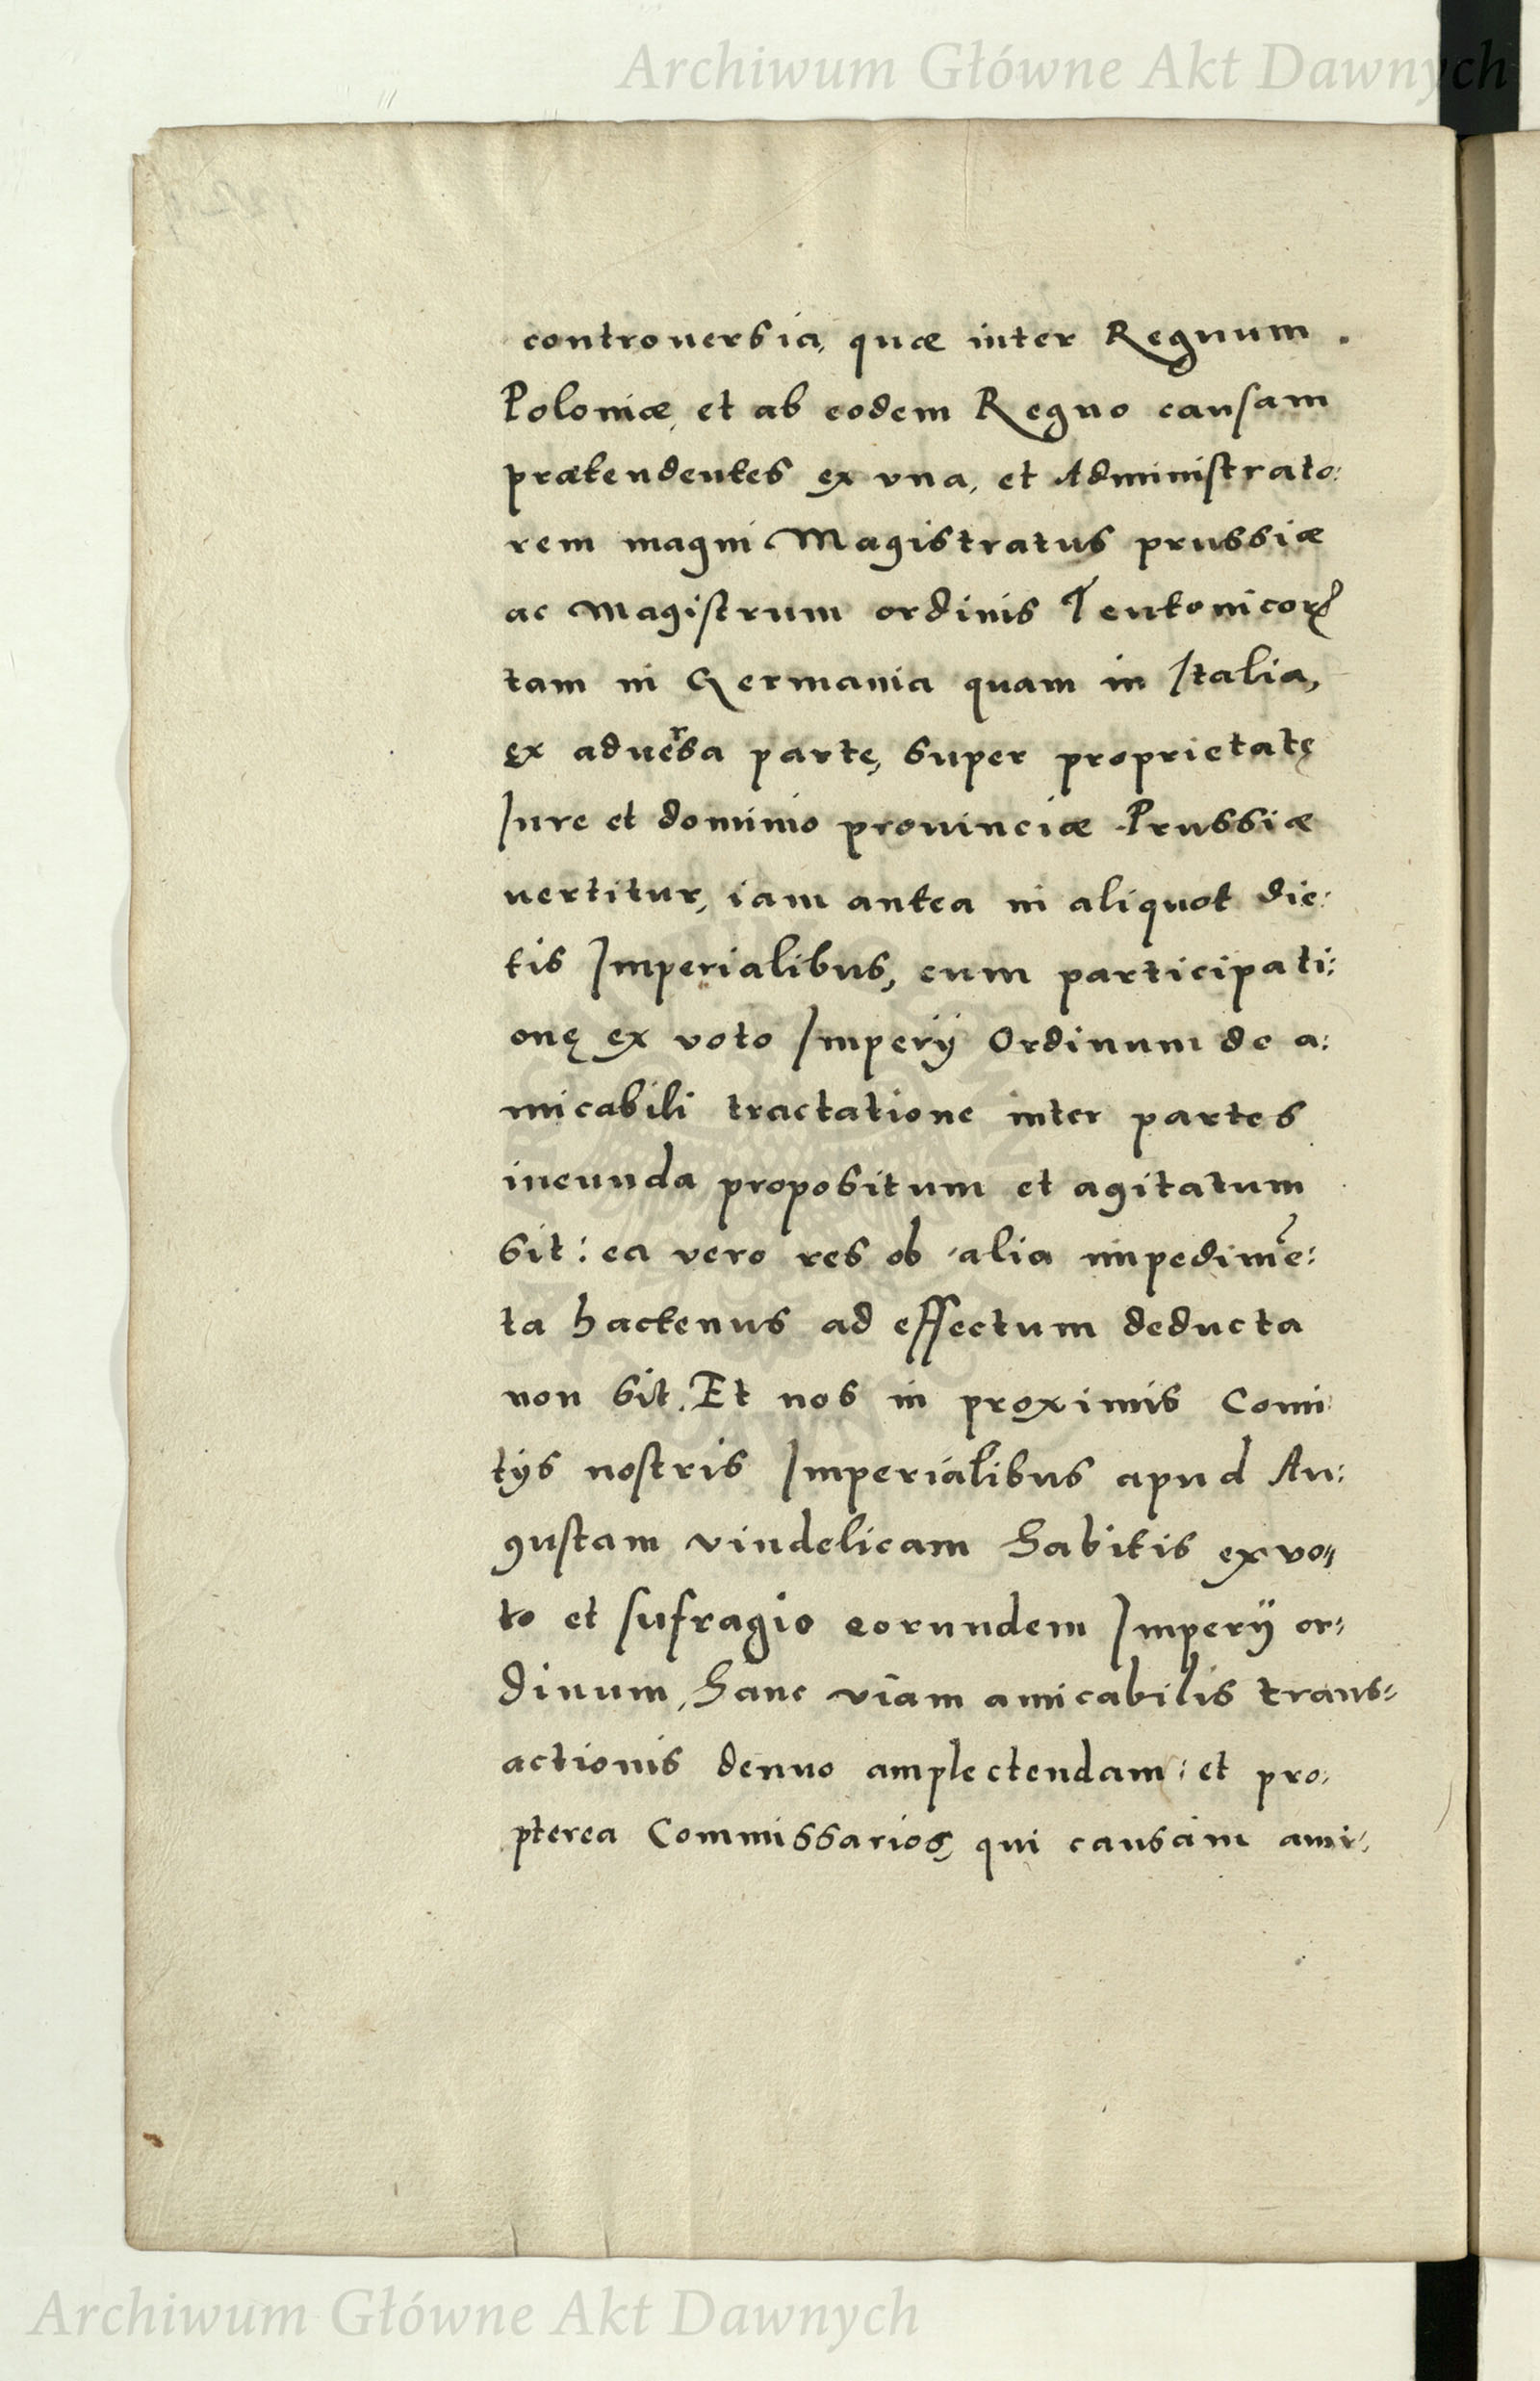 Archiwum Główne Akt Dawnych
controuersia, quæ inter Regnum.
Poloniæ, et ab eodem Regno causam
prætendentes ex vna, et Administrato:
rem magni Magistratus prussiæ
ac Magistrum ordinis Teutonicorꝝ
tam in Germania quam in Italia,
ex aduersa parte, super proprietatę
Jure et dominio prouinciæ Prussiæ
uertitur, iam antea in aliquot die:
tis Imperialibus, cum participati:
onę ex voto Imperij Ordinum de a:
micabili tractatione inter partes
ineunda propositum et agitatum
sit: ea vero res ob alia impedimẽ:
ta hactenus ad effectum deducta
non sit. Et nos in proximis Comi:
tijs nostris Imperialibus apud Au:
gustam vindelicam habitis ex vo„
to et sufragio eorundem Imperij or:
dinum, hanc viam amicabilis trans:
actionis denuo amplectendam: et pro:
pterea Commissarios, qui causam ami:
Archiwum Główne Akt Dawnych